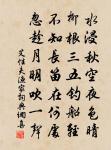 水浸秋空夜色晴
柳根三五钓船轻
不知长笛在何处
忽趁月明吹一声
艾性夫渔家词典调喜